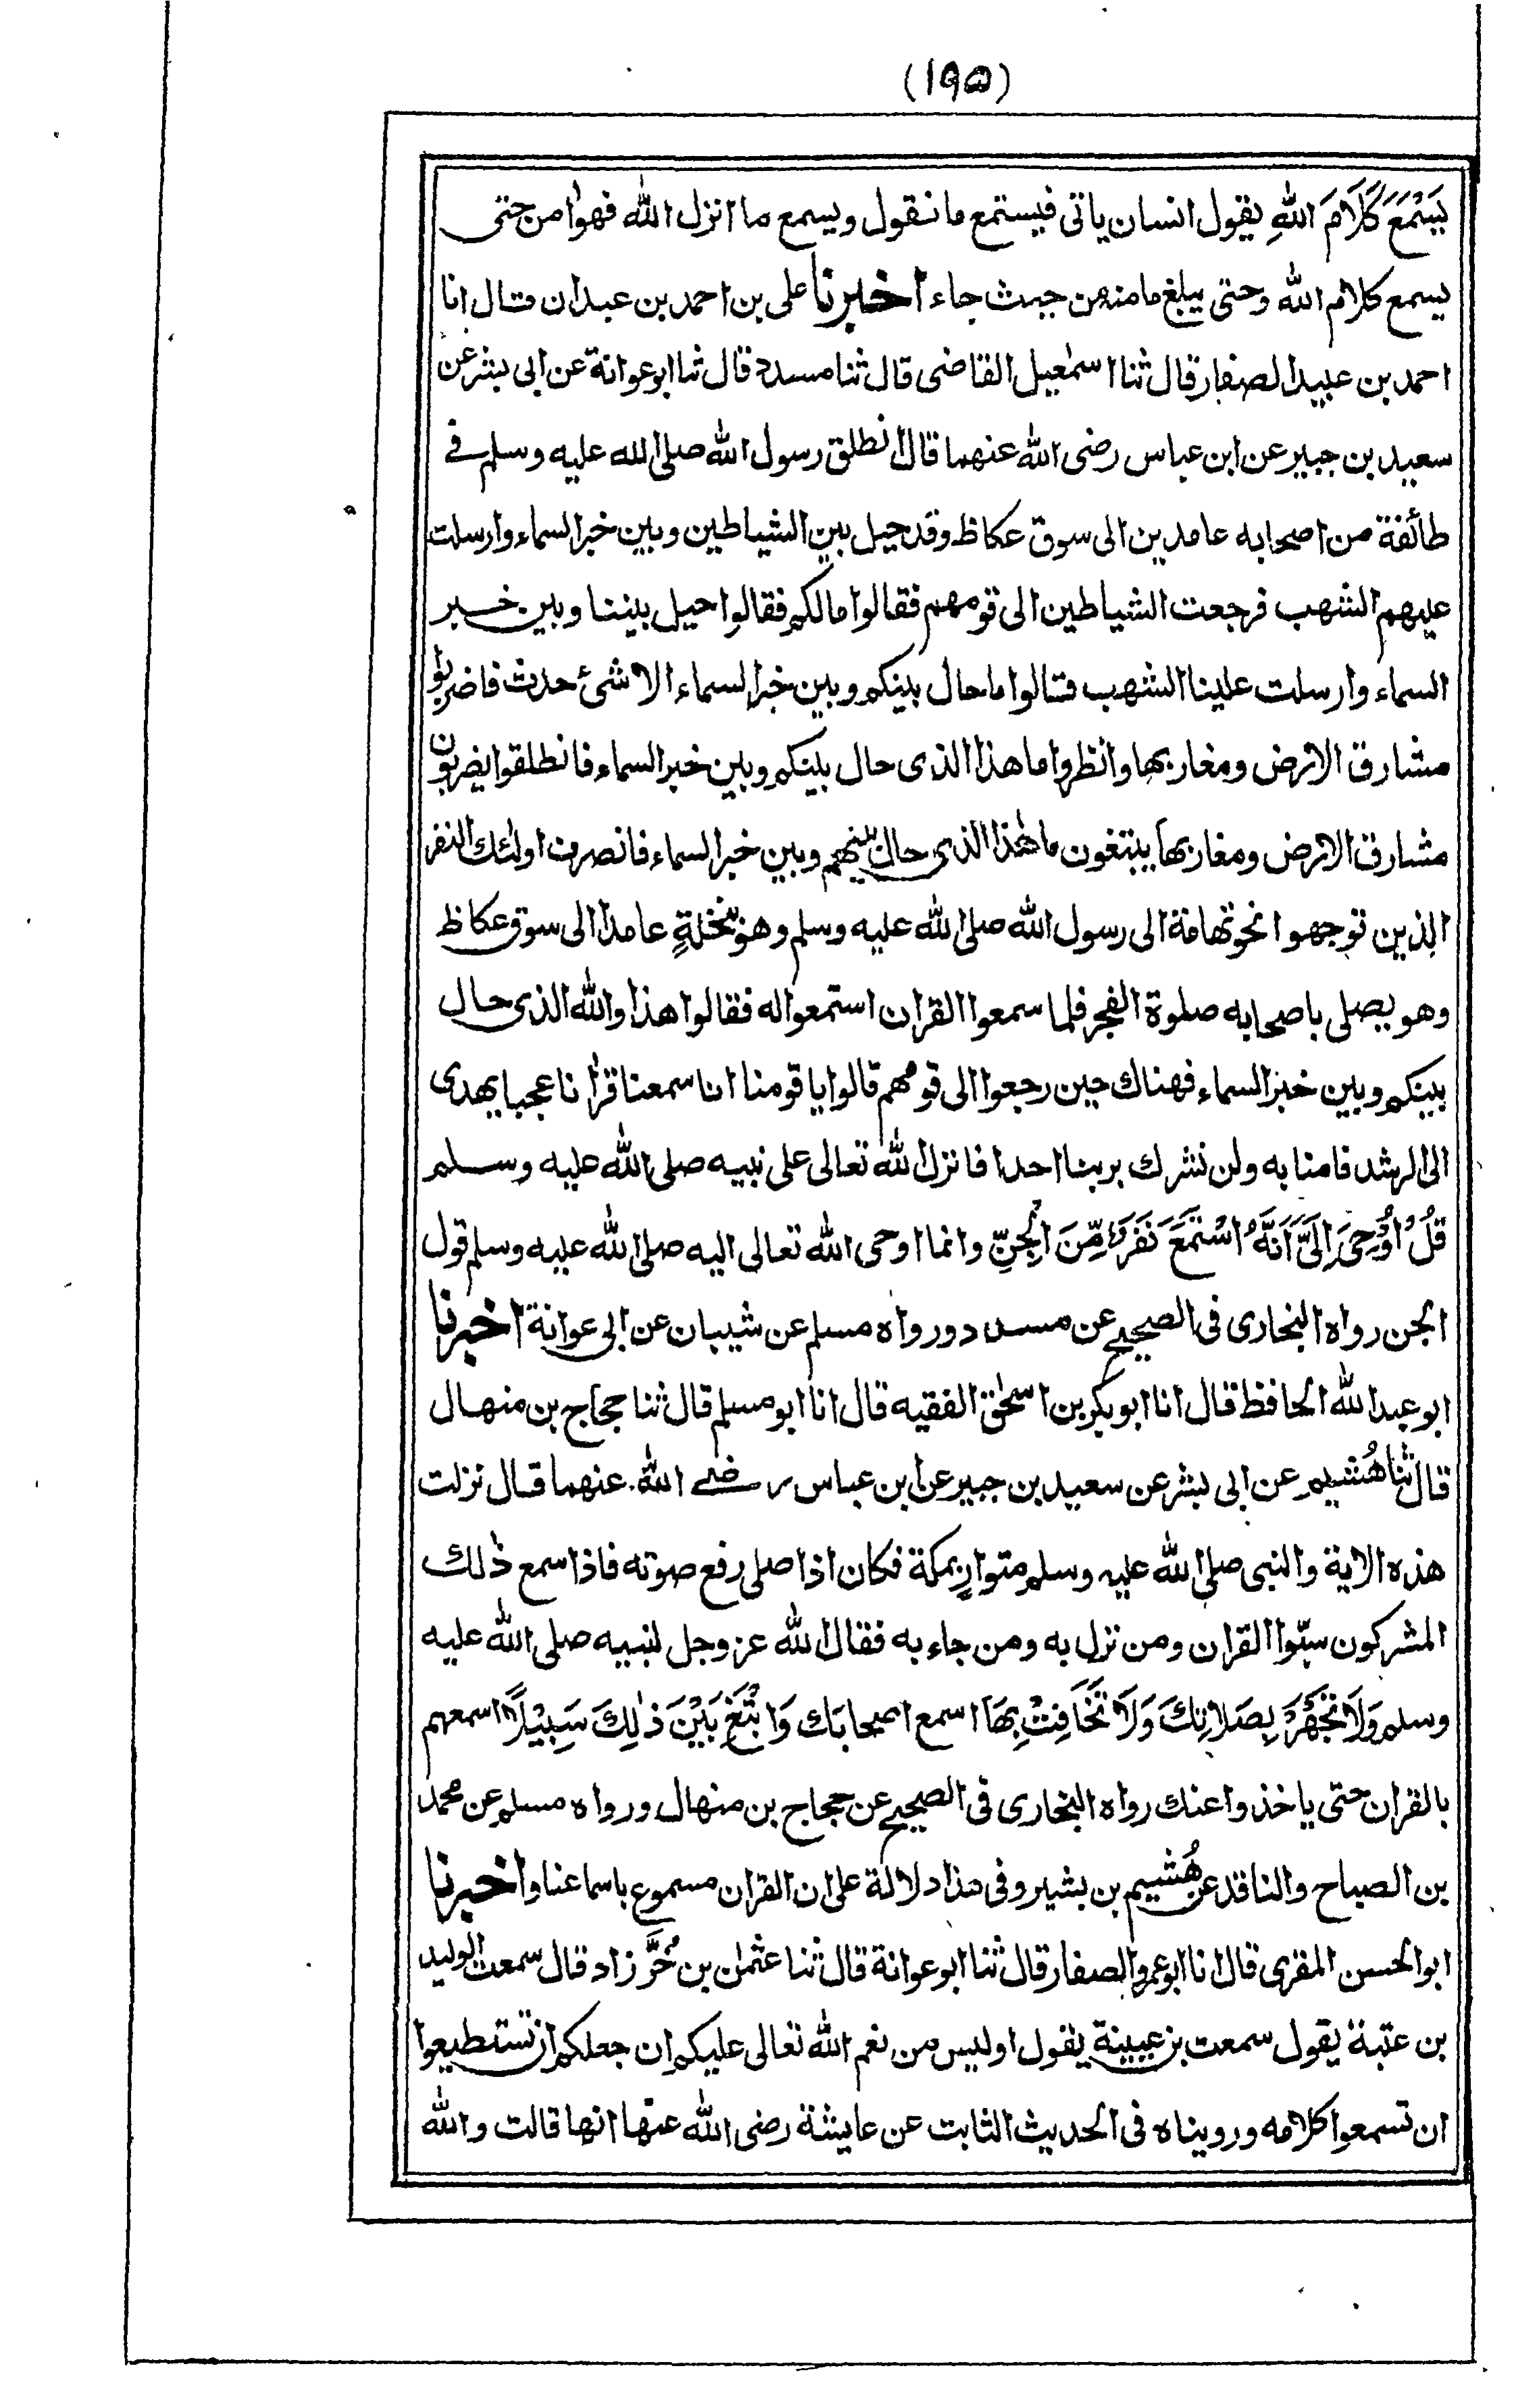 (١٩٥)
يَسْمَعَ كَلَامَ اللهِ يقول انسان ياتى فيستمع ما نقول ويسمع ما انزل الله فهوا من حتى
يسمع كلام الله وحتى يبلغ مامنه من حيث جاء اخبرنا على بن احمد بن عبدان قال انا
احمد بن عبيد الصفار قال ثنا اسمٰعيل القاضى قال ثنا مسدد قال ثنا ابو عوانة عن ابى بشر عن
سعيد بن جبير عن ابن عباس رضى الله عنهما قال انطلق رسول الله صلى الله عليه وسلم فے
طائفة من اصحابه عامدين الى سوق عكاظ وقد حيل بين الشياطين وبين خبر السماء وارسلت
عليهم الشهب فرجعت الشياطين الى قومهم فقالوا مالكم فقالوا حيل بيننا وبين خبر
السماء وارسلت علينا الشهب فقالوا ما حال بينكم وبين خبر السماء الا شئ حدث فاضربوا
مشارق الارض ومغاربها وانظروا ما هذا الذى حال بينكم وبين خبر السماء فانطلقوا يضربون
مشارق الارض ومغاربها يبتغون ما هٰذا الذى حال بينهم وبين خبر السماء فانصرف اولئك النفر
الذين توجهوا نحو تهامة الى رسول الله صلى الله عليه وسلم وهو بنخلةٍ عامدا الى سوق عكاظ
وهو يصلى باصحابه صلوة الفجر فلما سمعوا القران استمعوا له فقالوا هذا والله الذى حال
بينكم وبين خبر السماء فهناك حين رجعوا الى قومهم قالوا يا قومنا انا سمعنا قراٰنا عجبا يهدى
الى الرشد فامنا به ولن نشرك بربنا احدا فانزل الله تعالى على نبيه صلى الله عليه وسلم
قُلْ اُوْحِىَ اِلَىَّ اَنَّهُ اسْتَمَعَ نَفَرٌ مِّنَ الْجِنِّ وانما اوحى الله تعالى اليه صلى الله عليه وسلم قول
الجن رواه البخارى فى الصحيح عن مسدد ورواه مسلم عن شيبان عن ابى عوانة اخبرنا
ابو عبد الله الحافظ قال انا ابو بكر بن اسحٰق الفقيه قال انا ابو مسلم قال ثنا حجاج بن منهال
قال ثنا هُشيم عن ابى بشر عن سعيد بن جبير عن ابن عباس رضے الله عنهما قال نزلت
هذه الاية والنبى صلى الله عليه وسلم متوارٍ بمكة فكان اذا صلى رفع صوته فاذا سمع ذٰلك
المشركون سبّوا القران ومن نزل به ومن جاء به فقال الله عز وجل لنبيه صلى الله عليه
وسلم وَلَا تَجْهَرْ بِصَلَاتِكَ وَلَا تُخَافِتْ بِهَا اسمع اصحابَك وَابْتَغِ بَيْنَ ذٰلِكَ سَبِيْلًا اسمعهم
بالقران حتى ياخذوا عنك رواه البخارى فى الصحيح عن حجاج بن منهال ورواه مسلم عن محمد
بن الصباح والناقد عن هُشيم بن بشير وفى هذا دلالة على ان القران مسموع باسماعنا واخبرنا
ابو الحسن المقرى قال انا ابو عمرو الصفار قال ثنا ابو عوانة قال ثنا عثمٰن بن خُرَّزاد قال سمعت الوليد
بن عتبة يقول سمعت بن عيينة يقول اوليس من نعم الله تعالى عليكم ان جعلكم ان تستطيعوا
ان تسمعوا كلامه وروينا ه فى الحديث الثابت عن عايشة رضى الله عنها انها قالت والله